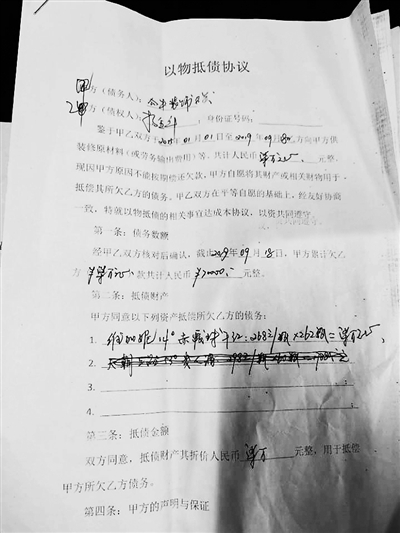 以物抵债协议
甲方（债务人）：
乙方（债权人）：，身份证号码：
鉴于甲乙双方于01月01日至2019年09月日，乙方向甲方供
装修原材料（或劳务输出费用）等，共计人民币元整。
现因甲方原因不能按期偿还欠款，甲方自愿将其财产或相关财物用于
抵偿其所欠乙方的债务。甲乙双方在平等自愿的基础上，经友好协商
一致，特就以物抵债的相关事宜达成本协议，以资共同遵守。
第一条：债务数额
经甲乙双方核对后确认，截止2019年09月18日，甲方累计欠乙
方款共计人民币¥70000元整。
第二条：抵债财产
甲方同意以下列资产抵偿所欠乙方的债务：
1. 14° 268元/瓶×262瓶=
2.
3.
4.
第三条：抵债金额
双方同意，抵偿财产共折价人民币元整，用于抵偿
甲方所欠乙方债务。
第四条：甲方的声明与保证